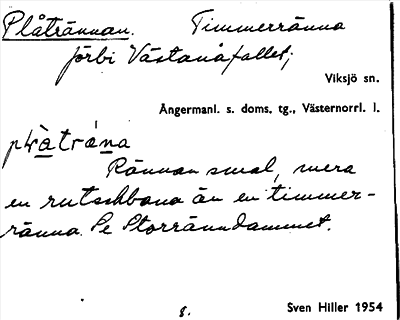 Plåtrännan. Timmerränna
förbi Västanåfallet;
Viksjö sn.
Ångermanl. s. doms. tg., Västernorrl. l.
Rännan smal, mera
en rutschbana än en timmer-
ränna. Se Storränndammet.
8. Sven Hiller 1954